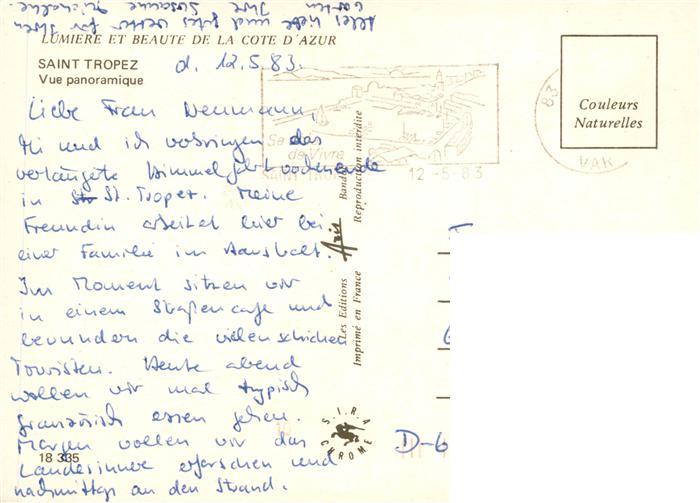 LUMIERE ET BEAUTE DE LA COTE D'AZUR
SAINT TROPEZ
Vue panoramique
d. 12.5.83.
Liebe Frau Neumann,
und ich verbringen das
verlängerte Himmelfahrtswochenende
in St. Tropez. Meine
Freundin arbeitet hier bei
einer Familie im Haushalt.
Im Moment sitzen wir
in einem Straßencafe und
bewundern die vielen schicken
Touristen. Heute abend
wollen wir mal typisch
französisch essen gehen.
Morgen wollen wir das
Landesinnere erforschen und
nachmittags an den Strand.
Alles Liebe und gutes Wetter für Ihren
Garten Ihre Susanne
18 335
Les Editions Aris
Imprimé en France
Reproduction interdite
S.I.R.A
CHROME
de Vivre
SAINT-TROPEZ
12-5-83
83
VAR
Couleurs
Naturelles
D-6